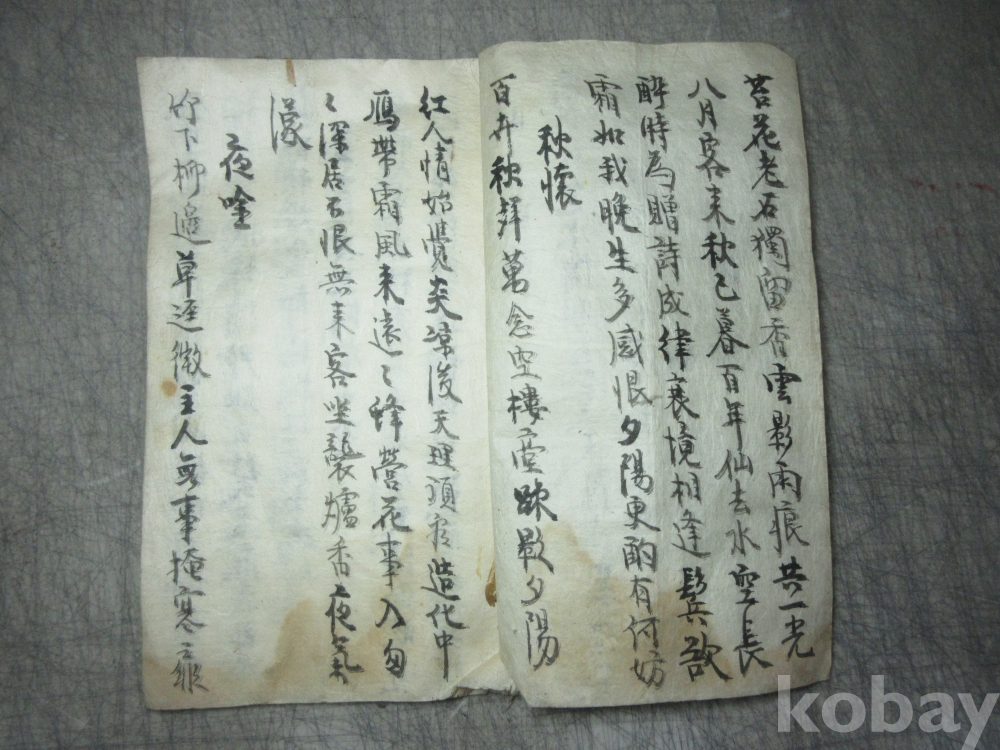 苔花老石獨留香雲影雨痕共一光
八月客来秋已暮百年仙去水空長
醉時為贈詩成律衰境相逢鬂欲
霜如我晚生多感恨夕陽更酌有何妨
秋懷
百卉秋聲萬念空樓臺踈影夕陽
紅人情始覺炎凉後天理須看造化中
鴈帶霜風来遠〻蜂營花事入匆
〻深居不恨無来客坐襲爐香夜氣
濛
夜唫
竹下柳邊草逕微主人無事掩寒
kobay